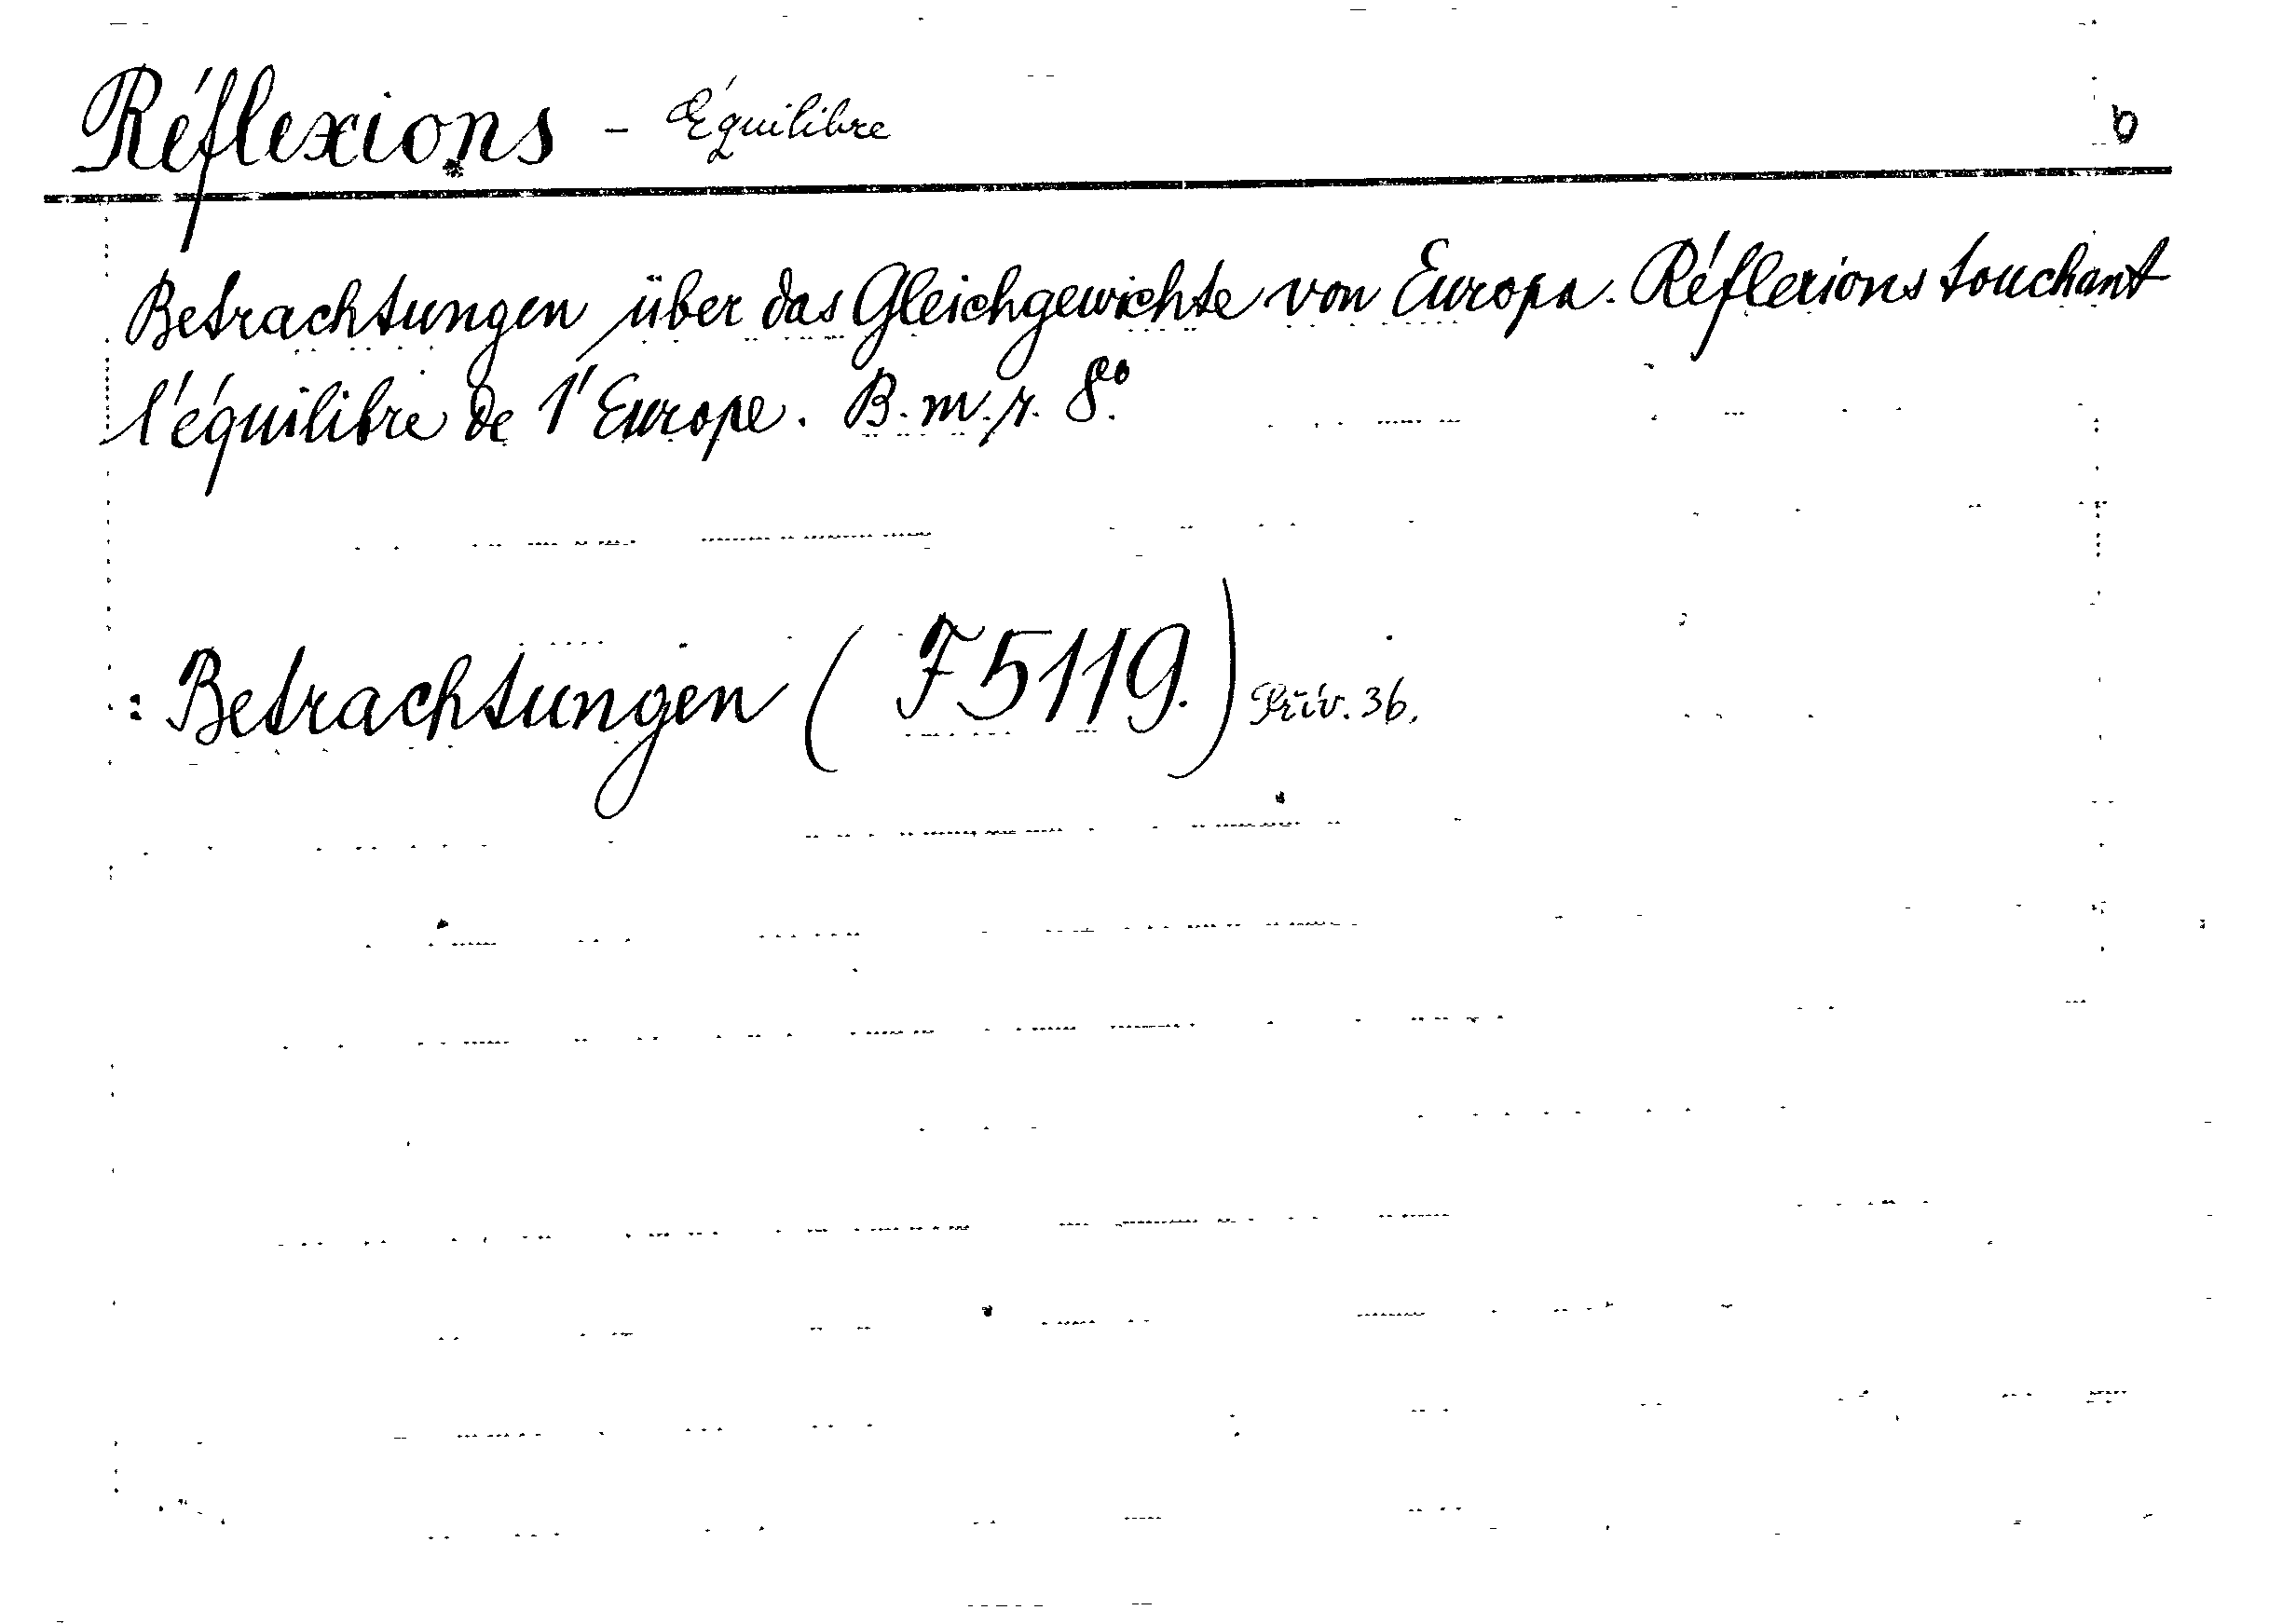 Réflexions - Équilibre b
Betrachtungen über das Gleichgewichte von Europa. Réflexions touchant
l'équilibre de l'Europe. B. m. r. 8º.
: Betrachtungen ( F 5119.) Priv. 36.